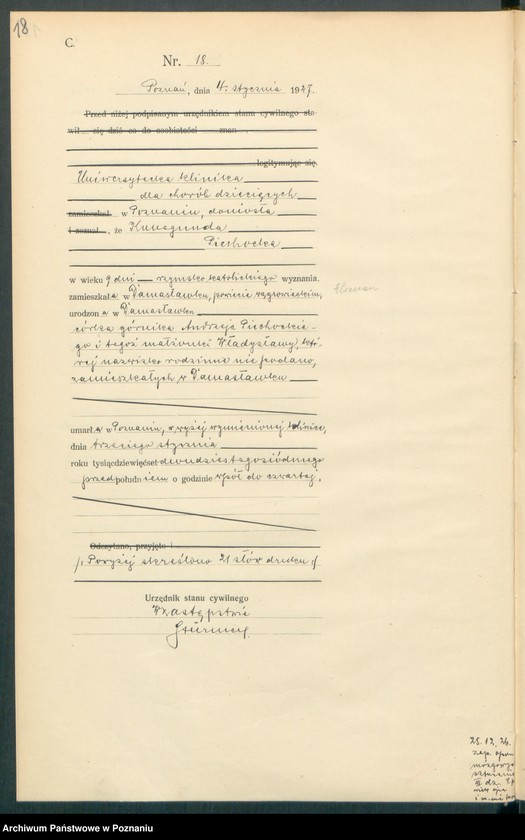 18
C.
Nr. 18.
Poznań, dnia 4. stycznia 1927.
Przed niżej podpisanym urzędnikiem stanu cywilnego sta-
wił się dziś co do osobistości znan
legitymując się
Uniwersytecka klinika
dla chorób dziecięcych
zamieszkał w Poznaniu, doniosła
i zeznał, że Kunegunda
Piechocka
w wieku 9 dni rzymsko katolickiego wyznania.
zamieszkała w Damasławku, powiecie wągrowieckim,
urodzona w Damasławku
córka górnika Andrzeja Piechockie-
go i tegoż małżonki Władysławy, któ-
rej nazwisko rodzinne nie podano,
zamieszkałych w Damasławku
umarła w Poznaniu, w wyżej wymienionej klinice,
dnia trzeciego stycznia
roku tysiącdziewięćset dwudziestegosiódmego
przedpołudniem o godzinie wpół do czwartej.
Odczytano, przyjęto i
Powyżej skreślono 21 słów druku
Urzędnik stanu cywilnego
W zastępstwie
25. 12. 26.
Archiwum Państwowe w Poznaniu